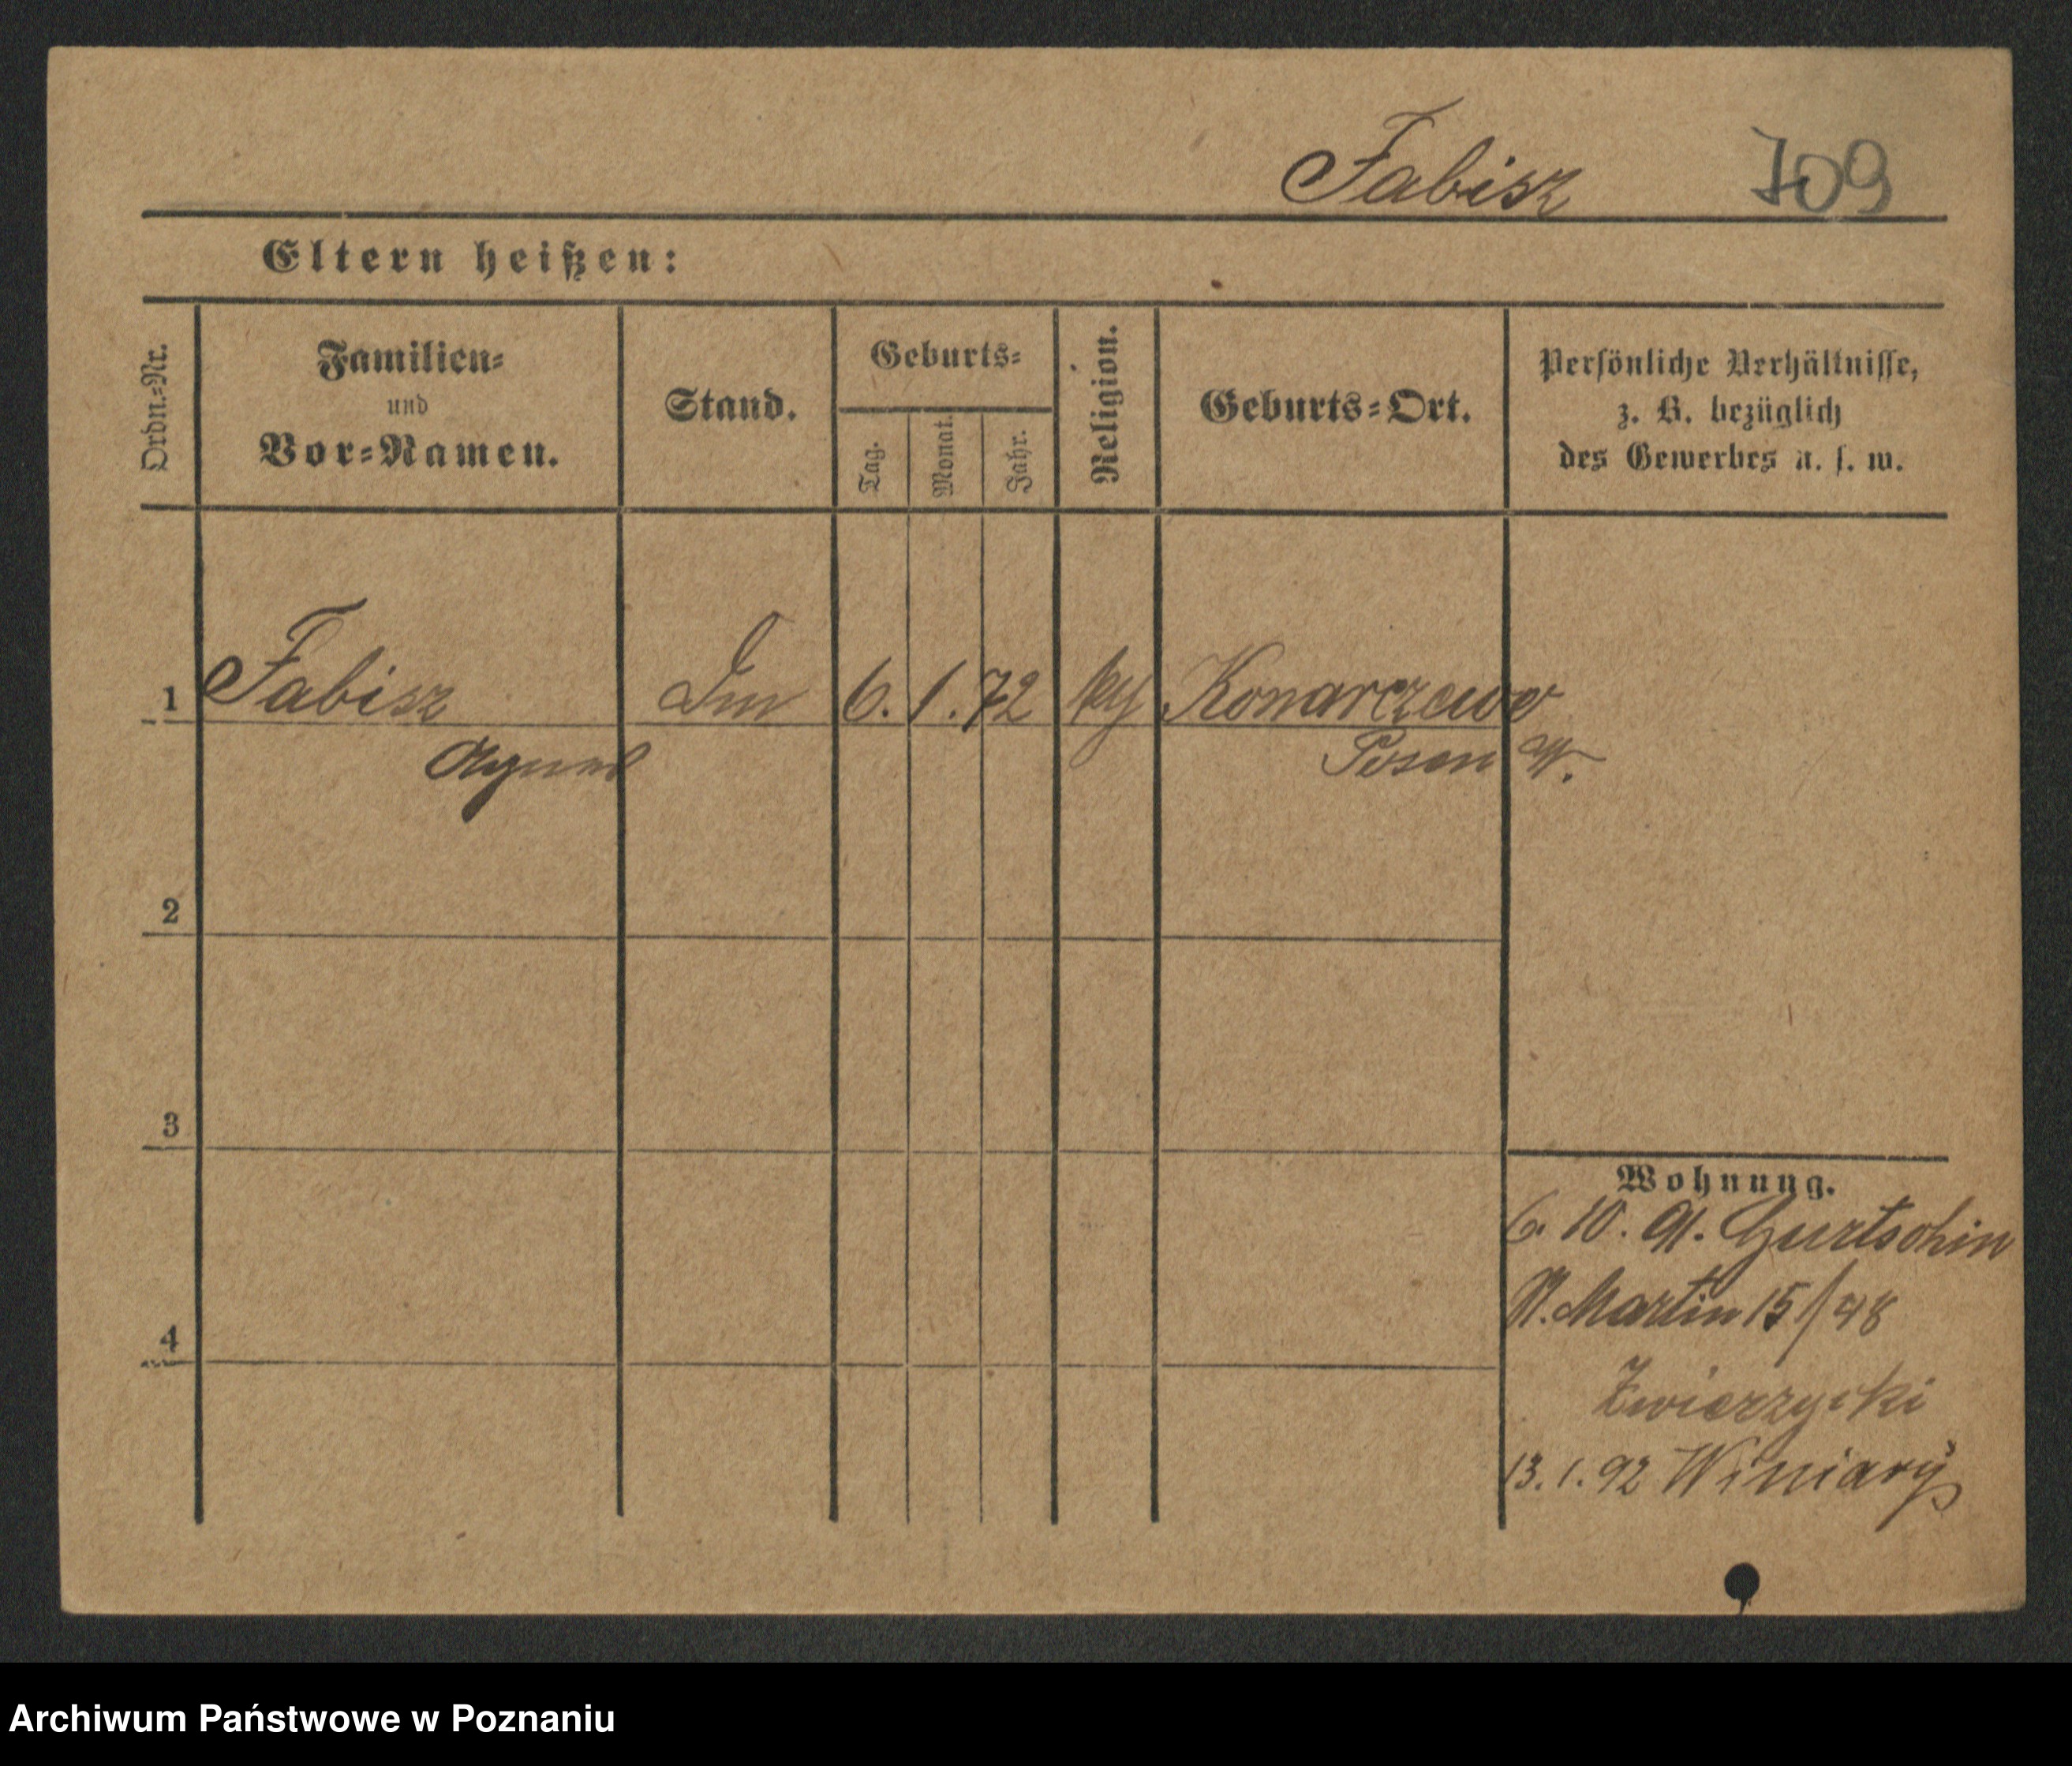 Fabisz 709
Eltern heißen:
Ordn.-Nr.
Familien-
und
Vor-Namen.
Stand.
Geburts-
Tag.
Monat.
Jahr.
Religion.
Geburts-Ort.
Persönliche Verhältnisse,
z. B. bezüglich
des Gewerbes u. s. w.
1 Fabisz 6. 1. 72 Konarczewo
Posen W.
2
3
4
Wohnung.
6. 10. 91. Gurtschin
St. Martin 15/48
Zwierzycki
13. 1. 92 Winiary
Archiwum Państwowe w Poznaniu